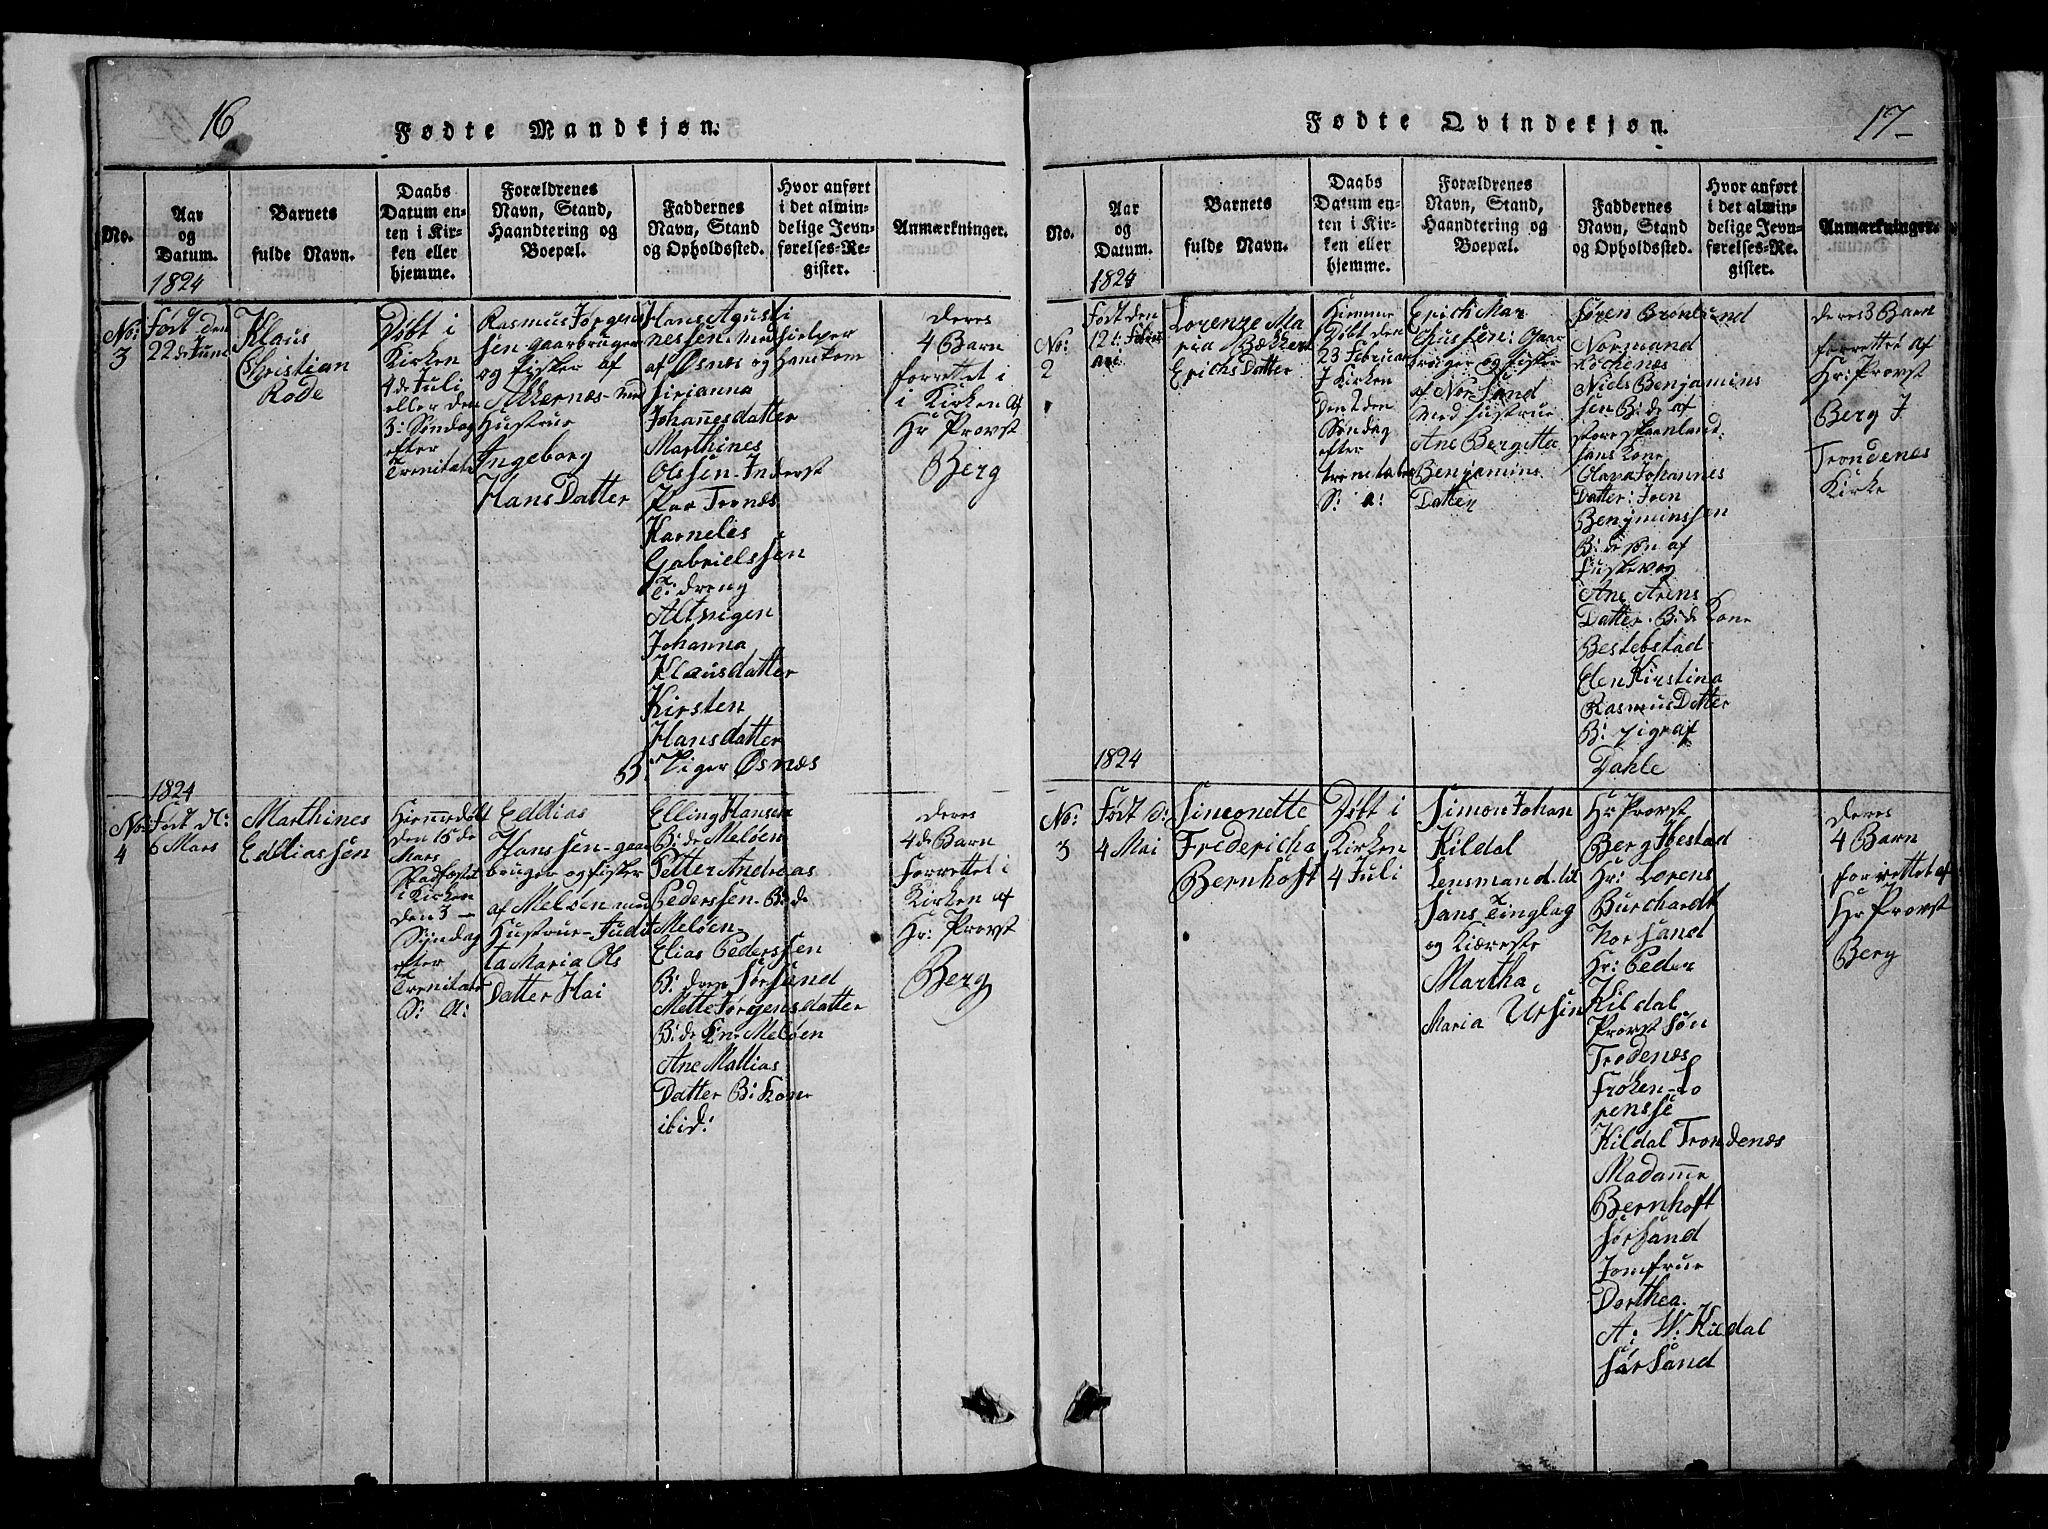 16
Fødte Mandkjøn.
No.
Aar
og
Datum.
1824
Barnets
fulde Navn.
Daabs
Datum en-
ten i Kir-
ken eller
hjemme.
Forældrenes
Navn, Stand,
Haandtering og
Boepæl.
Faddernes
Navn, Stand
og Opholdssted.
Hvor anført
i det almin-
delige Jevn-
førelses-Re-
gister.
Anmærkninger.
No:
3
Født den
22de Juni
Klaus
Christian
Rode
Döbt i
Kirken
4de Juli
eller den
3: Söndag
efter
Trenitatis
Rasmus Jörgens
sen gaarbruger
og fisker af
Akkernæs med
Hustrue
Ingeborg
Hans Datter
Hans Agusti
nessen Medhielper
af Øsnæs og Hanskone
Sirianna
Johannesdatter
Marthines
Olssen Inderst
Paa Trenæs
Karneles
Gabrielssen
T: dreng
Altvigen
Johanna
Klausdatter
Kirsten
Hansdatter
B: Piger Øsnæs
deres
4 Barn
forrettet i
i Kirken af
Hr Provst
Berg
1824
No:
4
Födt d:
6 Mars
Marthines
Eddiassen
Hiemmedöbt
den 15de
Mars
Stadfæstet
i Kirken
den 3
Syndag
efter
Trenitatis
S: A:
Eddias
Hanssen gaar
bruger og fisker
af Melöen med
Hustrue Judit
ta Maria Ols
Datter Hai
Elling Hansen
B: de Melöen
Petter Andreas
Pederssen B: de
Melöen
Elias Pederssen
B: dren Sörsand
Mette Jörgensdatter
B: de Kne Melöen
Ane Mattias
Datter B: Kone
ibid:
deres
4de Barn
Forrettet i
Kirken af
Hr: Provst
Berg
17
Fødte Qvindekjøn.
No.
Aar
og
Datum.
1824
Barnets
fulde Navn.
Daabs
Datum en-
ten i Kir-
ken eller
hjemme.
Forældrenes
Navn, Stand,
Haandtering og
Boepæl.
Faddernes
Navn, Stand
og Opholdssted.
Hvor anført
i det almin-
delige Jevn-
førelses-Re-
gister.
Anmærkninger.
No:
2
Födt den
12t: Febru
ari
Lorenze Ma
ria Bækker
Erichs Datter
Hiemme
Döbt den
23 Februar
I Kirken
den 2den
Söndag
efter
trenetates
S: a:
Erich Mar
Gaar
bruger og fisker
af Nor Sand
Med Hustrue
Ane Bergitta
Benjamins
Datter
Sören Brönlund
Normand
Röckenes
Niels Benjamins
sen B: de af
store skaanland:
Hans Kone
Olapa Johannes
Datter: Iven
Benjminssen
B: de sön af
Ane Arens
Datter B: de Kone
Bestebstad
Elen Kirstina
Rasmus Datter
B: pige af
Dahle
deres 3 Barn
forrettet af
Hr: Provst
Berg I
Trondenes
Kirke
1824
No:
3
Födt d:
4 Mai
Simeonette
Friderichа
Bernhoft
Döbt i
Kirken
4 Juli
Simon Johan
Kildal
Lensmand til
Sans Tinglag
og Kiæreste
Martha
Maria Ursin
Hr Provst
Berg Ibestad
Hr: Lorens
Burchardt
Nor Sand
Hr: Peder
Kildal
Provst Sön
Trodenæs
Fröken Lo
rensse
Kildal Trondenæs
Madamme
Bernhoft
Sör Sand
Jomfrue
Dorthea
A: W: Kildal
Sör Sand
deres
4 Barn
forrettet af
Hr Provst
Berg